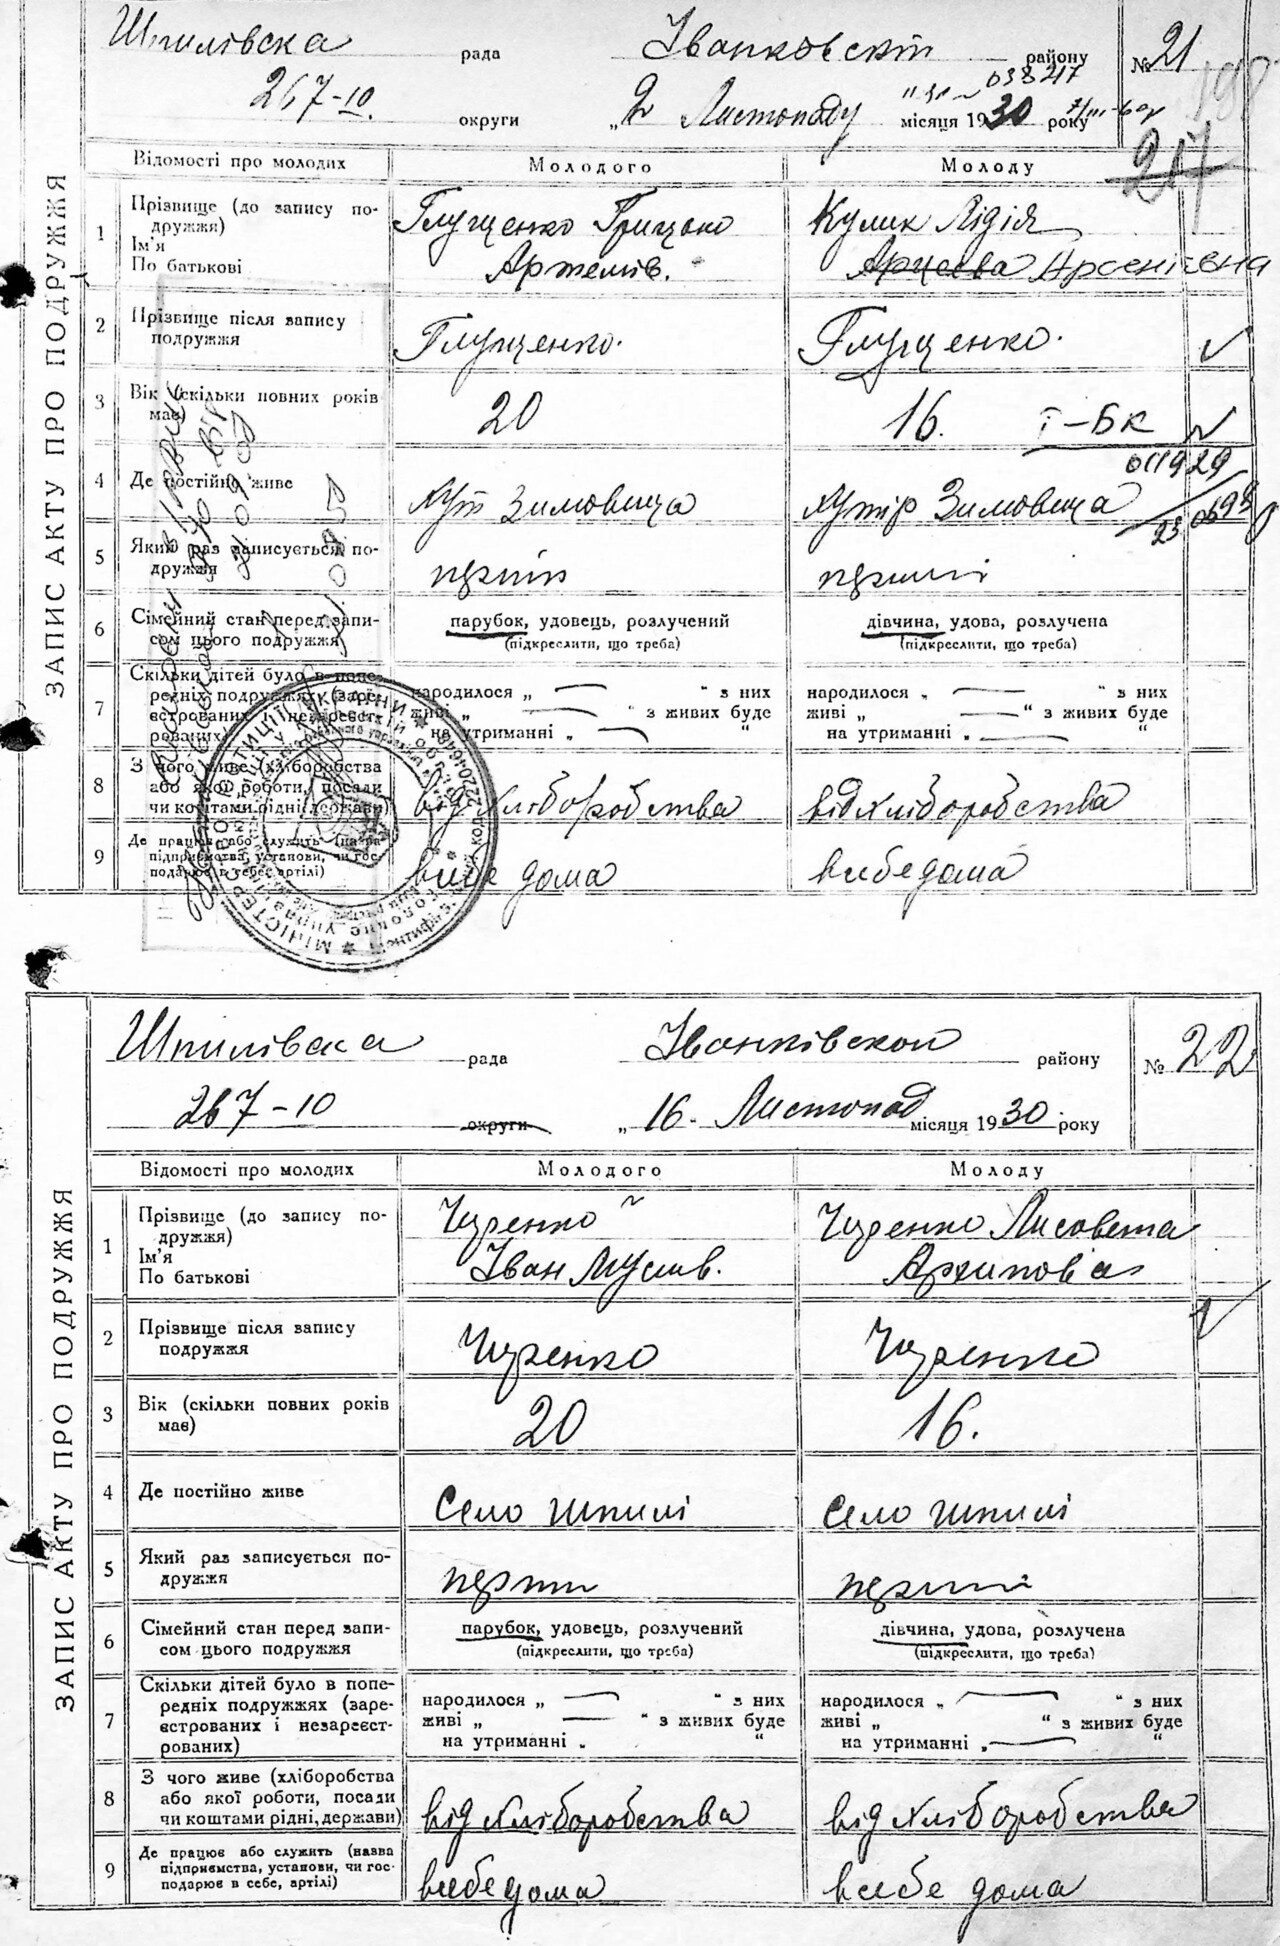 Шпилівска рада Іванковскій району № 21
267-10. округи „2 Листопаду місяця 1930 року
038217
217
ЗАПИС АКТУ ПРО ПОДРУЖЖЯ
Відомості про молодих Молодого Молоду
1 Прізвище (до запису по-
дружжя)
Ім'я
По батькові
Глущенко Грицько
Артемів.
Кулик Лідія
Арсеєва Арсеніївна
2 Прізвище після запису
подружжя
Глущенко.
Глущенко.
3 Вік (скільки повних років
має)
20
16. І-БК
011929
4 Де постійно живе
хут Зимовища
хутір Зимовища
5 Який раз записується по-
дружжя
6 Сімейний стан перед запи-
сом цього подружжя
парубок, удовець, розлучений
(підкреслити, що треба)
дівчина, удова, розлучена
(підкреслити, що треба)
7 Скільки дітей було в попе-
редніх подружжях (заре-
єстрованих і незареєст-
рованих)
народилося „ “ з них
живі „ “ з живих буде
на утриманні „ “
народилося „ “ з них
живі „ “ з живих буде
на утриманні „ “
8 З чого живе (хліборобства
або якої роботи, посади
чи коштами рідні, держави)
від хліборобства
від хліборобства
9 Де працює або служить (назва
підприємства, установи, чи гос-
подарює в себе, артілі)
всебе дома
всебе дома
Шпилівска рада Іванківской району № 22
267-10 округи „16. Листопад місяця 1930 року
ЗАПИС АКТУ ПРО ПОДРУЖЖЯ
Відомості про молодих Молодого Молоду
1 Прізвище (до запису по-
дружжя)
Ім'я
По батькові
Чуренко
Іван Мусив.
Чуренко Лисовета
Архипова
2 Прізвище після запису
подружжя
Чуренко
Чуренко
3 Вік (скільки повних років
має)
20
16.
4 Де постійно живе
Село Шпилі
Село Шпилі
5 Який раз записується по-
дружжя
6 Сімейний стан перед запи-
сом цього подружжя
парубок, удовець, розлучений
(підкреслити, що треба)
дівчина, удова, розлучена
(підкреслити, що треба)
7 Скільки дітей було в попе-
редніх подружжях (заре-
єстрованих і незареєст-
рованих)
народилося „ “ з них
живі „ “ з живих буде
на утриманні „ “
народилося „ “ з них
живі „ “ з живих буде
на утриманні „ “
8 З чого живе (хліборобства
або якої роботи, посади
чи коштами рідні, держави)
від хліборобства
від хліборобства
9 Де працює або служить (назва
підприємства, установи, чи гос-
подарює в себе, артілі)
всебе дома
всебе дома